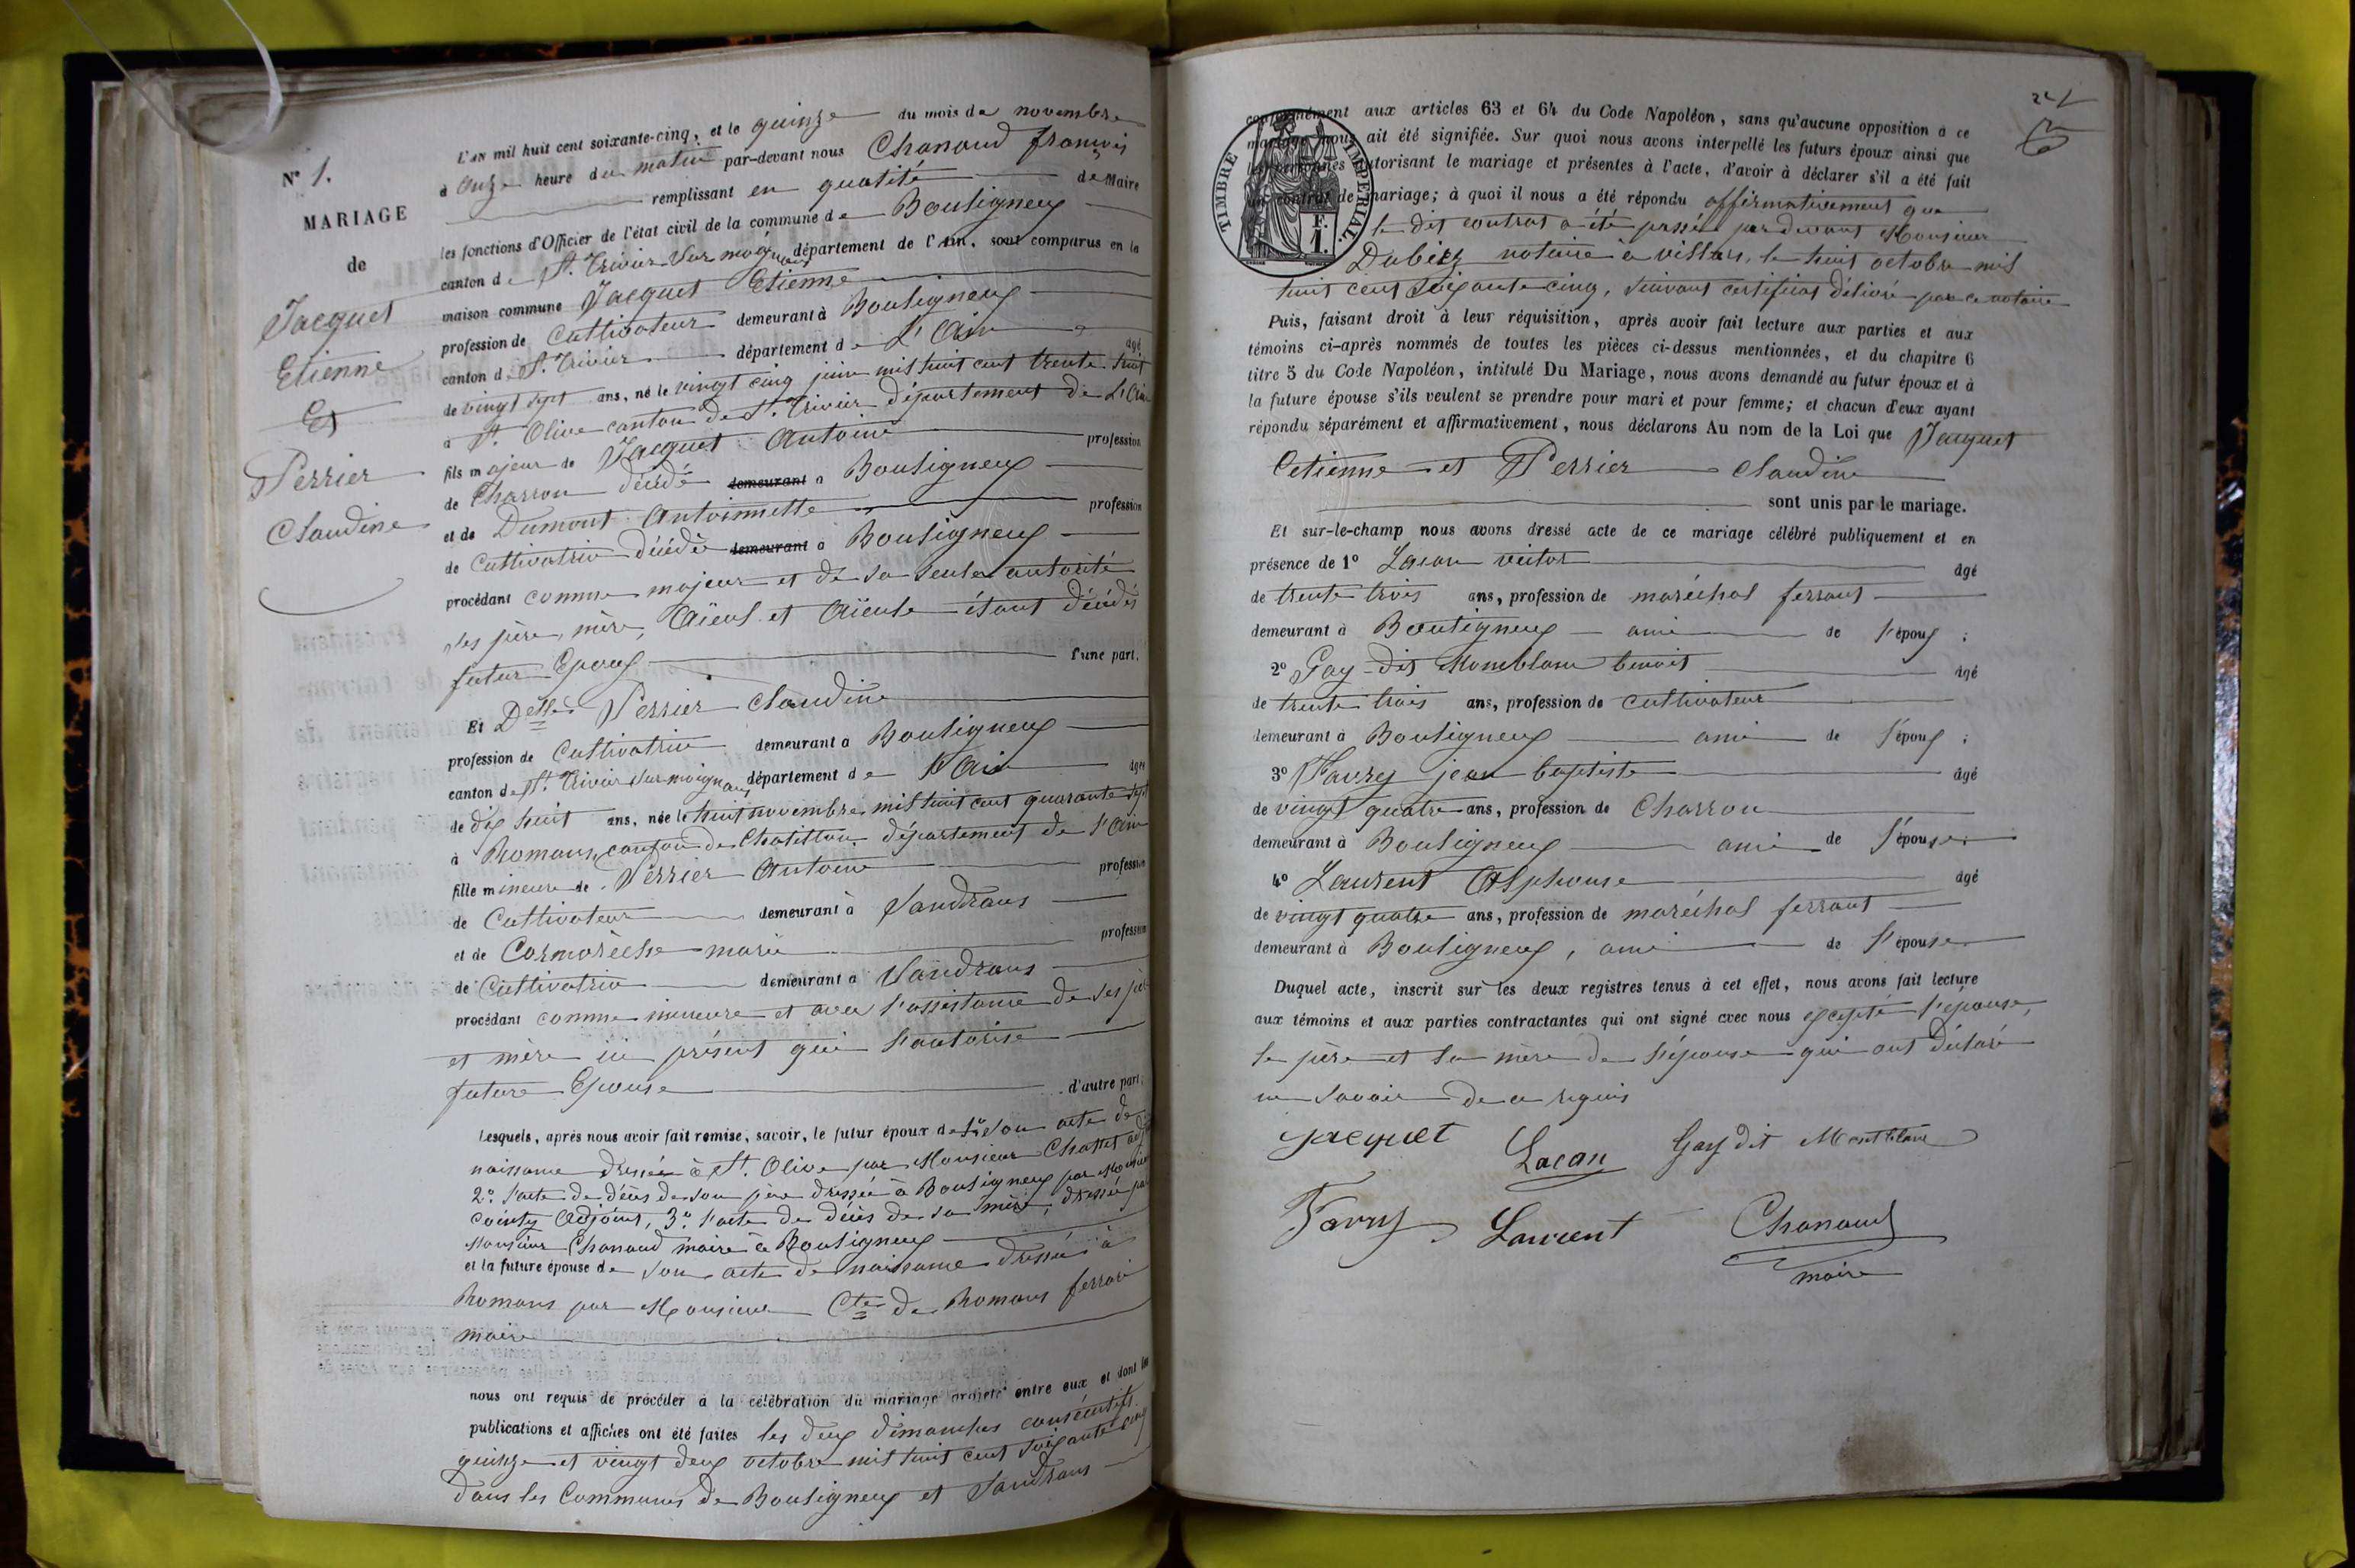 N° 1.
MARIAGE
de
Jacquet
Etienne
Et
Perrier
Claudine
L'AN mil huit cent soixante-cinq, et le quinze du mois de novembre
à Onze heure du matin par-devant nous Chanaud françois
remplissant en qualité de Maire
les fonctions d'Officier de l'état civil de la commune de Bouligneux
canton de St. Trivier Sur moignans département de l'Ain, sont comparus en la
maison commune Jacquet Etienne
profession de Cultivateur demeurant à Bouligneux
canton de St. Trivier département de L'Ain âgé
de vingt sept ans, né le vingt cinq juin mil huit cent trente huit
à St. Olive canton de St. Trivier département de L'Ain
fils majeur de Jacquet Antoine profession
de Charron décédé demeurant à Bouligneux
et de Dumont Antoinette profession
de Cultivatrice décédée demeurant à Bouligneux
procédant comme majeur et de sa seule autorité
ses père, mère, Aïeul et Aïeule étant décédés
futur Epoux l'une part.
Et Delle Perrier Claudine
profession de Cultivatrice demeurant à Bouligneux
canton de St. Trivier Sur moignans département de l'Ain âgée
de dix huit ans, née le huit novembre mil huit cent quarante sept
à Romans, canton de Chatillon département de l'Ain
fille mineure de Perrier Antoine profession
de Cultivateur demeurant à Sandrans
et de Cormorèche marie profession
de Cultivatrice demeurant à Sandrans
procédant comme mineure et avec l'assistance de ses père
et mère ici présent qui l'autorise
future Epouse d'autre part;
Lesquels, après nous avoir fait remise, savoir, le futur époux de 1° son acte de
naissance dressée à St. Olive par Monsieur Chattet adj
2° l'acte de décès de son père dressée à Bouligneux par Monsieur
Cointy Adjoint, 3° l'acte de décès de sa mère, dressée par
Monsieur Chanaud maire à Bouligneux
et la future épouse de son acte de naissance dressée à
Romans par Monsieur Cte de Romans ferrari
maire
nous ont requis de procéder à la célébration du mariage projeté entre eux et dont les
publications et affiches ont été faites les deux dimanches consécutifs
quinze et vingt deux octobre mil huit cent soixante cinq
dans les Communes de Bouligneux et Sandrans
conformément aux articles 63 et 64 du Code Napoléon, sans qu'aucune opposition à ce
mariage nous ait été signifiée. Sur quoi nous avons interpellé les futurs époux ainsi que
les personnes autorisant le mariage et présentes à l'acte, d'avoir à déclarer s'il a été fait
un contrat de mariage; à quoi il nous a été répondu affirmativement que
le dit contrat a été passé par devant Monsieur
Dubiez notaire à villars, le huit octobre mil
huit cent soixante cinq, suivant certificat délivré par ce notaire
TIMBRE IMPÉRIAL.
F.
1.
Puis, faisant droit à leur réquisition, après avoir fait lecture aux parties et aux
témoins ci-après nommés de toutes les pièces ci-dessus mentionnées, et du chapitre 6
titre 5 du Code Napoléon, intitulé Du Mariage, nous avons demandé au futur époux et à
la future épouse s'ils veulent se prendre pour mari et pour femme; et chacun d'eux ayant
répondu séparément et affirmativement, nous déclarons Au nom de la Loi que Jacquet
Cetienne et Perrier Claudine
sont unis par le mariage.
Et sur-le-champ nous avons dressé acte de ce mariage célébré publiquement et en
présence de 1° Lacan victor âgé
de trente trois ans, profession de maréchal ferrant
demeurant à Bouligneux ami de l'époux;
2° Gay dit Momblanc benoit âgé
de trente trois ans, profession de cultivateur
demeurant à Bouligneux ami de l'époux;
3° Favry jean baptiste âgé
de vingt quatre ans, profession de Charron
demeurant à Bouligneux ami de l'épouse;
4° Laurent Alphonse âgé
de vingt quatre ans, profession de maréchal ferrant
demeurant à Bouligneux, ami de l'épouse
Duquel acte, inscrit sur les deux registres tenus à cet effet, nous avons fait lecture
aux témoins et aux parties contractantes qui ont signé avec nous excepté l'épouse,
le père et la mère de l'épouse qui ont déclaré
ne savoir de ce requis
Jacquet Lacan Gay dit Montblanc
Favry Laurent Chanaud
maire